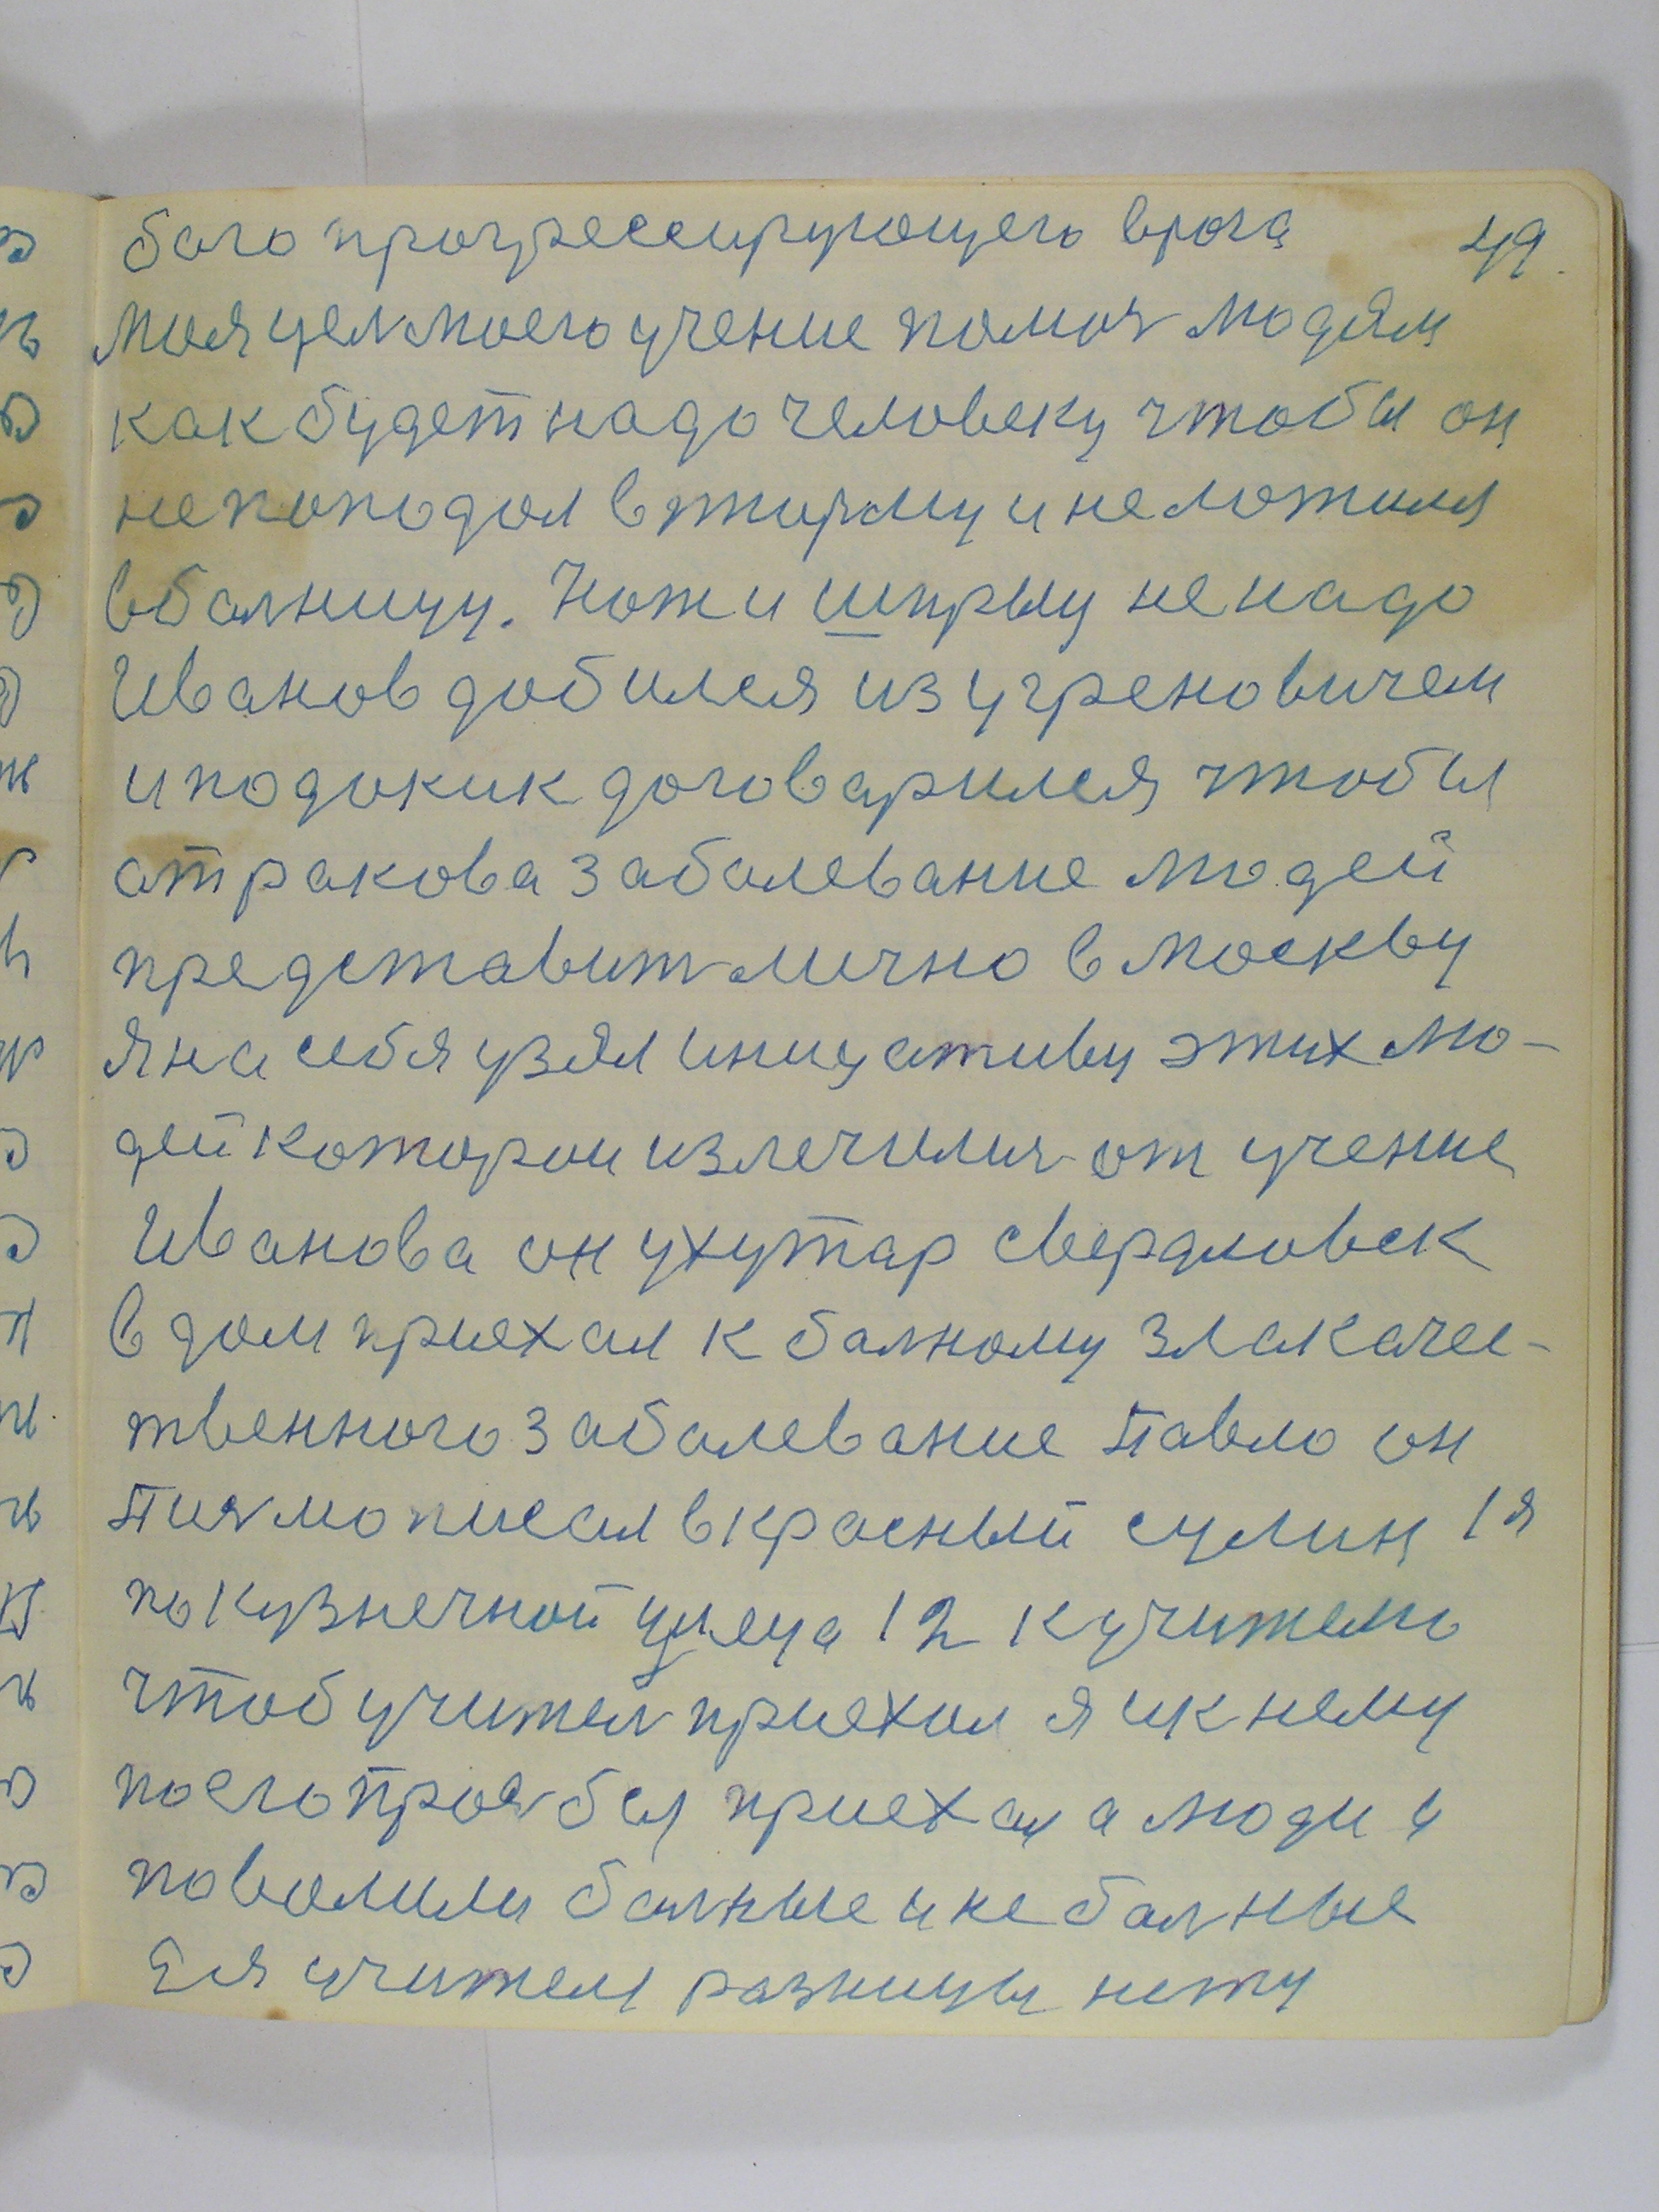 бого прогрессирующего врага 49.
Моя цел моего учение помоч людям
как будет надо человеку чтобы он
не поподал в тюрму и не ложился
в болницу. Нож и шпрыц не надо
Иванов добился из
и договарился чтобы
от ракова заболевание людей
представит лично в Москву
Я на себя узял инициативу этих лю-
дей которои излечились от учение
Иванова он ухутар свердловск
в дом приехал к болному злакачес-
твенного заболевание Павло он
Писмо писал в красный сулин 1я
по кузнечной улеца 12 к учителю
чтоб учител приехал я и к нему
по его просбы приехал а люди и
повалили болные и не болные
Для учителя разницы нету